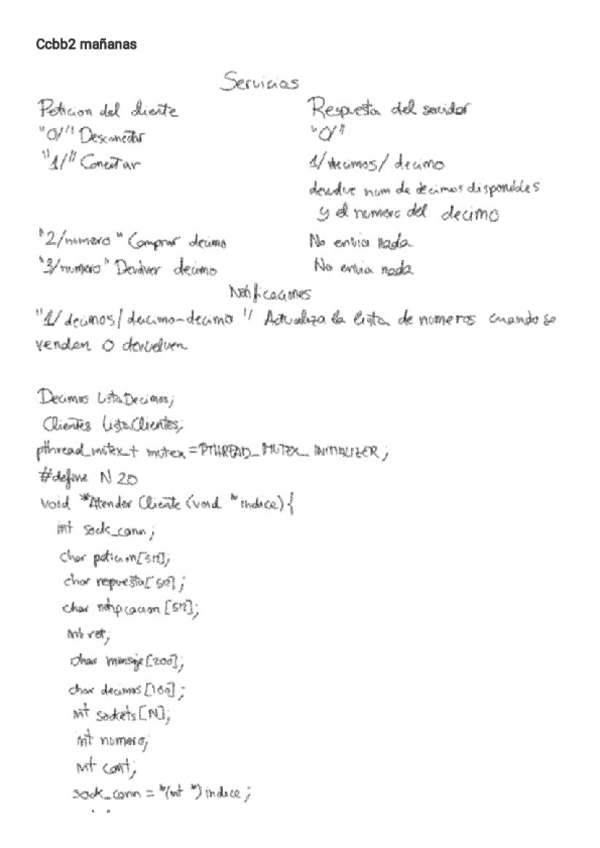 Ccbb2 mañanas
Servicios
Peticion del cliente Respuesta del servidor
"0/" Desconectar "0/"
"1/" Conectar 1/decimos/decimo
devuelve num de decimos disponibles
y el numero del decimo
"2/numero" Comprar decimo No envia nada
"3/numero" Devolver decimo No envia nada
Notificaciones
"1/decimos/decimo-decimo" Actualiza la lista de numeros cuando se
venden o devuelven
Decimos ListaDecimos;
Clientes ListaClientes;
pthread_mutex_t mutex = PTHREAD_MUTEX_INITIALIZER;
#define N 20
void *Atender Cliente (void *indice){
int sock_conn;
char peticion[512];
char repuesta[512];
char notificacion[512];
int ret;
char mensaje[200];
char decimos[100];
int sockets[N];
int numero;
int cont;
sock_conn = *(int *) indice;